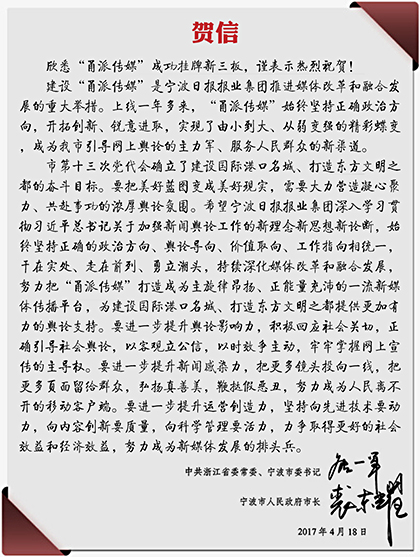 贺信
欣悉“甬派传媒”成功挂牌新三板，谨表示热烈祝贺！
建设“甬派传媒”是宁波日报报业集团推进媒体改革和融合发
展的重大举措。上线一年多来，“甬派传媒”始终坚持正确政治方
向，开拓创新、锐意进取，实现了由小到大、从弱变强的精彩蝶变
，成为我市引导网上舆论的主力军、服务人民群众的新渠道。
市第十三次党代会确立了建设国际港口名城、打造东方文明之
都的奋斗目标。要把美好蓝图变成美好现实，需要大力营造凝心聚
力、共赴事功的浓厚舆论氛围。希望宁波日报报业集团深入学习贯
彻习近平总书记关于加强新闻舆论工作的新理念新思想新论断，始
终坚持正确的政治方向、舆论导向、价值取向、工作指向相统一，
干在实处、走在前列、勇立潮头，持续深化媒体改革和融合发展，
努力把“甬派传媒”打造成为主旋律昂扬、正能量充沛的一流新媒
体传播平台，为建设国际港口名城、打造东方文明之都提供更加有
力的舆论支持。要进一步提升舆论影响力，积极回应社会关切，正
确引导社会舆论，以客观立公信，以时效争主动，牢牢掌握网上宣
传的主导权。要进一步提升新闻感染力，把更多镜头投向一线，把
更多页面留给群众，弘扬真善美，鞭挞假恶丑，努力成为人民离不
开的移动客户端。要进一步提升运营创造力，坚持向先进技术要动
力，向内容创新要质量，向科学管理要活力，力争取得更好的社会
效益和经济效益，努力成为新媒体发展的排头兵。
中共浙江省委常委、宁波市委书记
宁波市人民政府市长
裘东耀
2017年4月18日